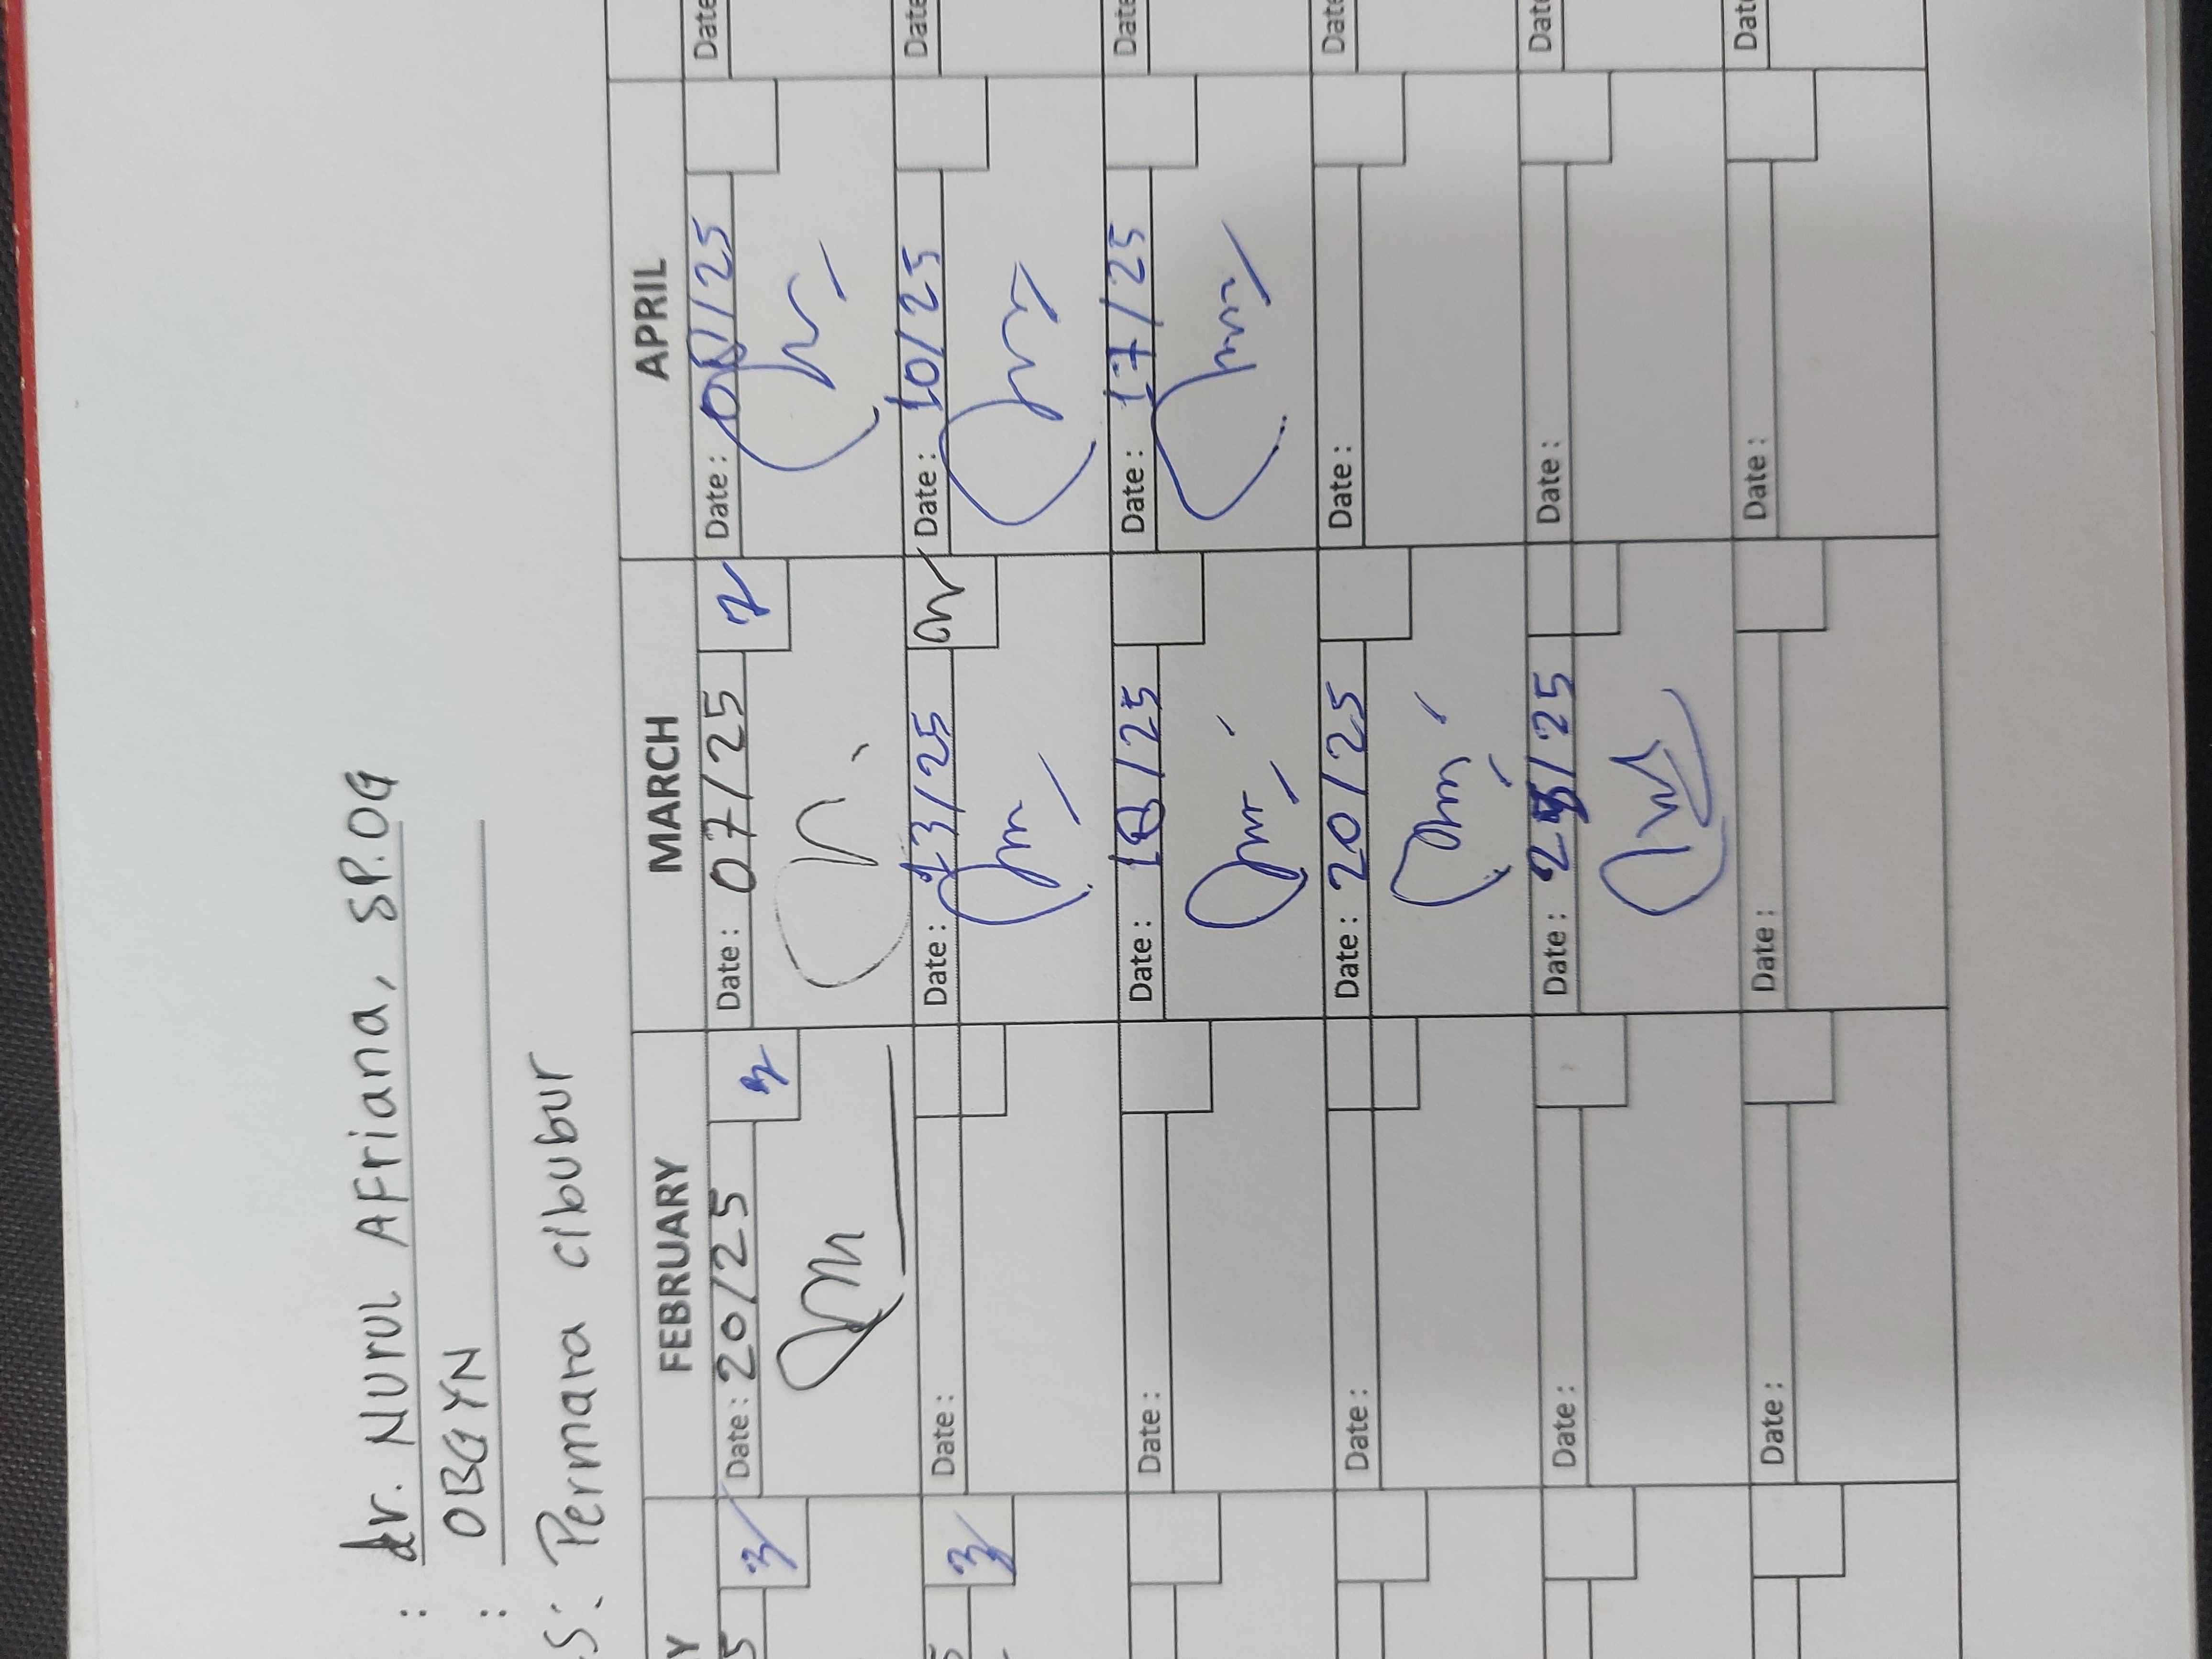 : dr. Nurul Afriana, SP.OG
: OBGYN
S: Permata cibubur
Y FEBRUARY MARCH APRIL
5 Date: 20/25 Date: 07/25 Date: 08/25 Date
5 Date: Date: 13/25 Date: 10/25 Date
Date: Date: 18/25 Date: 17/25 Date
Date: Date: 20/25 Date: Date
Date: Date: /25 Date: Date
Date: Date: Date: Date